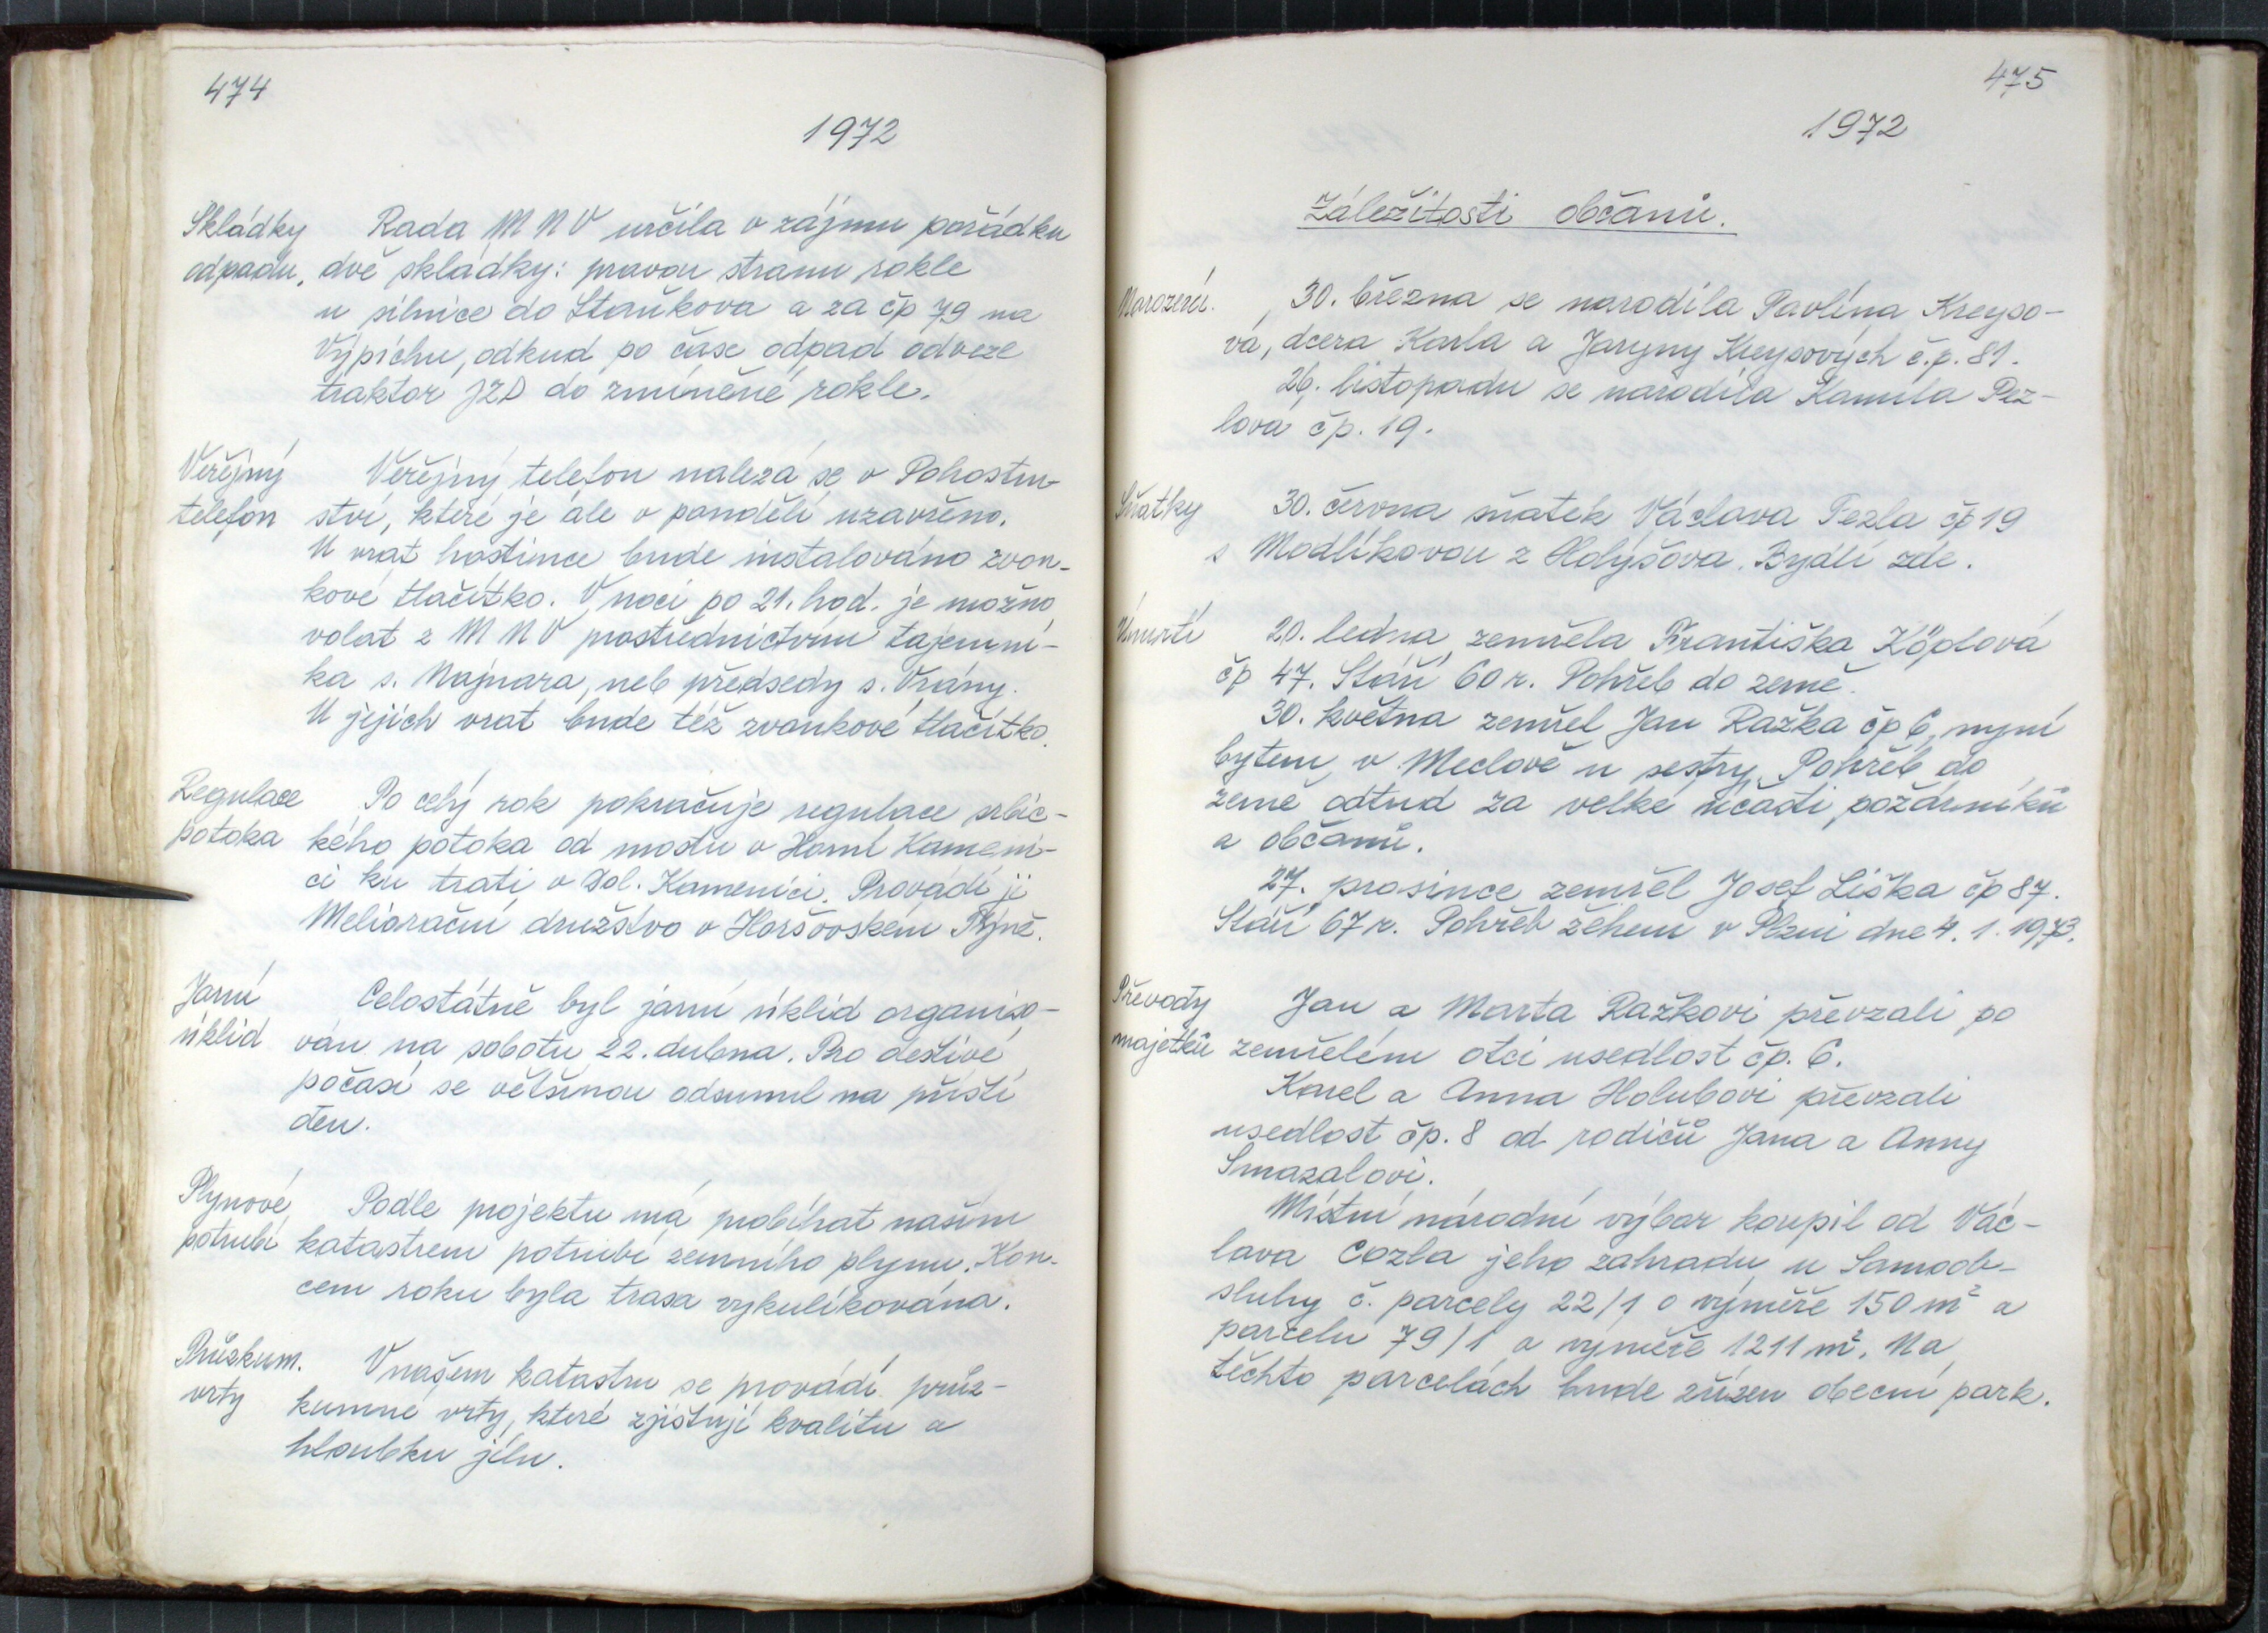 474
1972
Skládky Rada M N V určila v zájmu pořádku
odpadu. dvě skládky: pravou stranu rokle
u silnice do Staňkova a za čp 79 na
Výpichu, odkud po čase odpad odveze
traktor JZD do zmíněné rokle.
Veřejný Veřejný telefon nalezá se v Pohostin-
telefon ství, které je ale v pondělí uzavřeno.
U vrat hostince bude instalováno zvon-
kové tlačítko. V noci po 21. hod. je možno
volat z M N V prostřednictvím tajemní-
ka s. Najnara, neb předsedy s. Vrány.
U jejich vrat bude též zvonkové tlačítko.
Regulace Po celý rok pokračuje regulace srbic-
potoka kého potoka od mostu v Horní Kameni-
ci ku trati v Dol. Kamenici. Provádí ji
Meliorační družstvo v Horšovském Týně.
Jarní Celostátně byl jarní úklid organiso-
úklid ván na sobotu 22. dubna. Pro deštivé
počasí se většinou odsunul na příští
den.
Plynové Podle projektu má probíhat naším
potrubí katastrem potrubí zemního plynu. Kon-
cem roku byla trasa vykulíkována.
Průzkum. V našem katastru se provádí průz-
vrty kumné vrty, které zjišťují kvalitu a
hloubku jílu.
475
1972
Záležitosti občanů.
Narození. 30. března se narodila Pavlína Kreyso-
vá, dcera Karla a Jaryny Kreysových č.p. 81.
26. listopadu se narodila Kamila Pez-
lová čp. 19.
Sňatky 30. června sňatek Václava Pezla čp 19
s Modlíkovou z Holýšova. Bydlí zde.
Úmrtí 20. ledna zemřela Františka Köplová
čp 47. Stáří 60 r. Pohřeb do země.
30. května zemřel Jan Ražka čp 6, nyní
bytem v Meclově u sestry. Pohřeb do
země odtud za velké účasti požárníků
a občanů.
27. prosince zemřel Josef Liška čp 87.
Stáří 67 r. Pohřeb žehem v Plzni dne 4. 1. 1973.
Převody Jan a Marta Ražkovi převzali po
majetků zemřelém otci usedlost čp. 6.
Karel a Anna Holubovi převzali
usedlost čp. 8 od rodičů Jana a Anny
Smazalovi.
Místní národní výbor koupil od Vác-
lava Cozla jeho zahradu u Samoob-
sluhy č. parcely 22/1 o výměře 150 m² a
parcelu 79/1 o výměře 1211 m². Na
těchto parcelách bude zřízen obecní park.